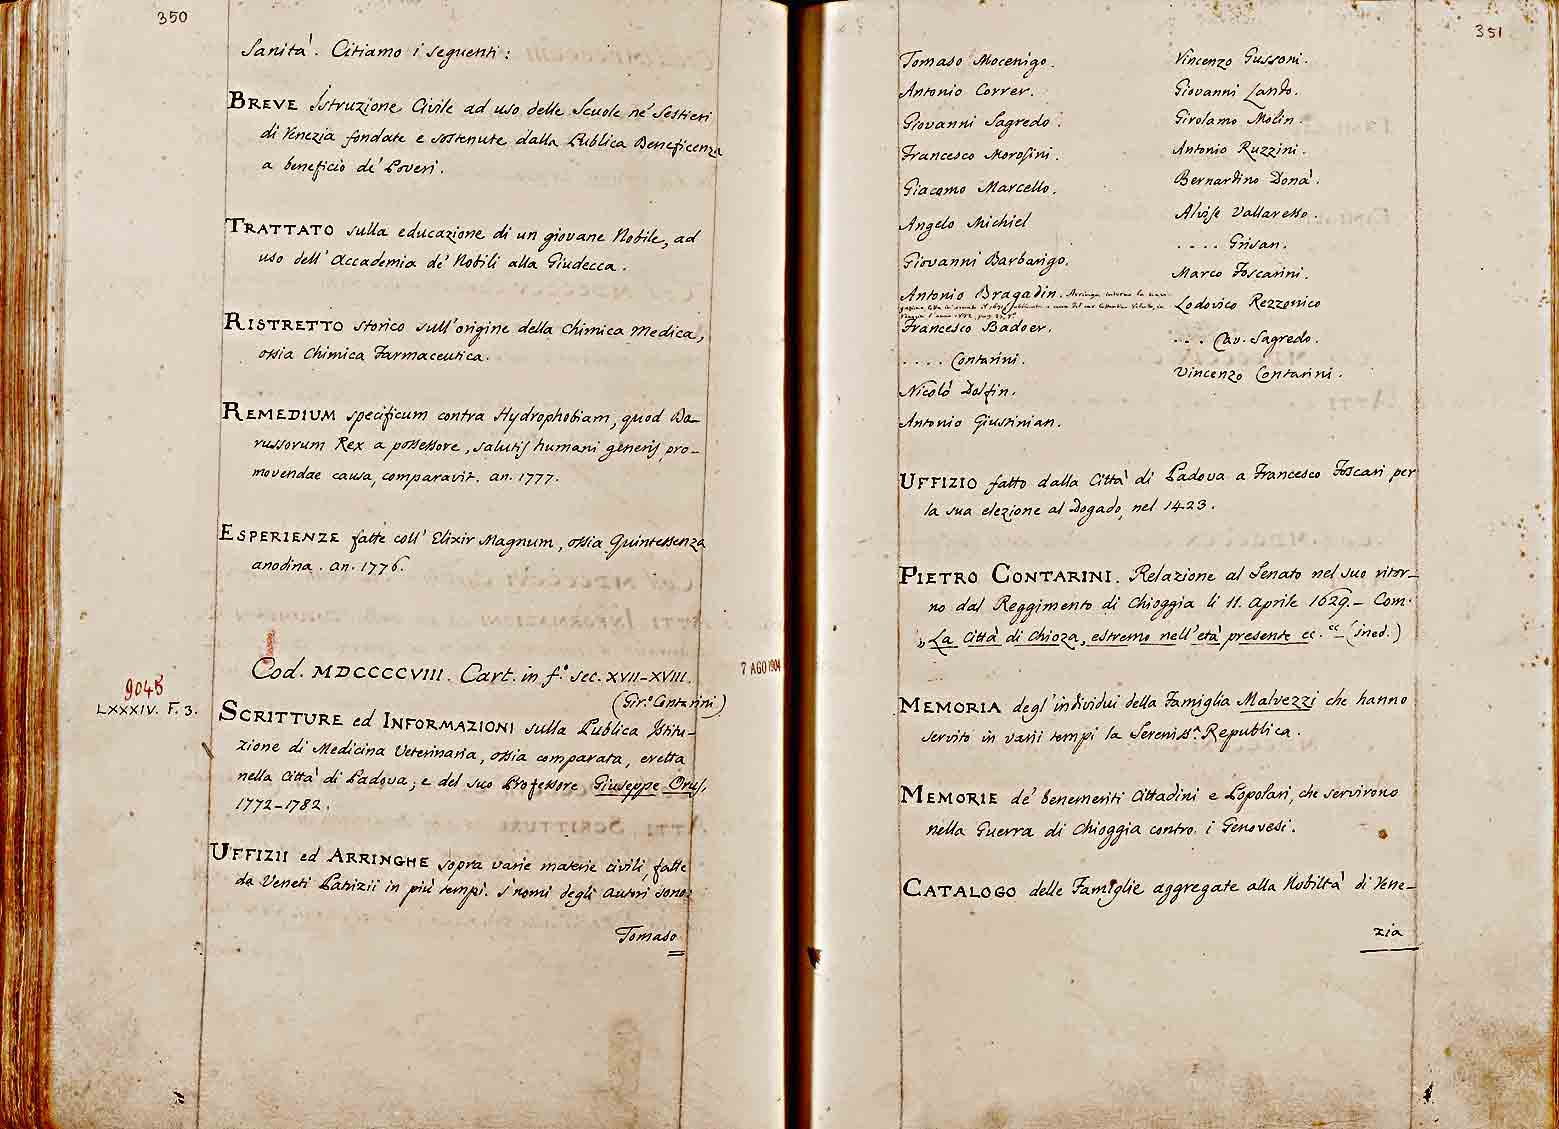 350
Sanità. Citiamo i seguenti:
BREVE Istruzione Civile ad uso delle Scuole ne' Sestieri
di Venezia fondate e sostenute dalla Publica Beneficenza
a beneficio de' Poveri.
TRATTATO sulla educazione di un giovane Nobile, ad
uso dell' Accademia de' Nobili alla Giudecca.
RISTRETTO storico sull'origine della Chimica Medica,
ossia Chimica Farmaceutica.
REMEDIUM specificum contra Hydrophobiam, quod Bo-
russorum Rex a possessore, salutis humani generis pro-
movendae causa, comparavit. an. 1777.
ESPERIENZE fatte coll' Elixir Magnum, ossia Quintessenza
anodina. an. 1776.
Cod. MDCCCCVIII. Cart. in f.º sec. XVII-XVIII.
(Gir.º Contarini)
9045
LXXXIV. F. 3.
SCRITTURE ed INFORMAZIONI sulla Publica Istitu-
zione di Medicina Veterinaria, ossia comparata, eretta
nella Città di Padova; e del suo Professore Giuseppe Orus.
1772-1782.
UFFIZII ed ARRINGHE sopra varie materie civili, fatte
da Veneti Patrizii in più tempi. I nomi degli Autori sono:
Tomaso
7 AGO 1904
351
Tomaso Mocenigo.
Antonio Correr.
Giovanni Sagredo.
Francesco Morosini.
Giacomo Marcello.
Angelo Michiel
Giovanni Barbarigo.
Antonio Bragadin. Arringa intorno la
Francesco Badoer.
.... Contarini.
Nicolò Dolfin.
Antonio Giustinian.
Vincenzo Gussoni.
Giovanni Lando.
Girolamo Molin.
Antonio Ruzzini.
Bernardino Donà.
Alvise Vallaresso.
.... Grisan.
Marco Foscarini.
Lodovico Rezzonico
.... Cav. Sagredo.
Vincenzo Contarini.
UFFIZIO fatto dalla Città di Padova a Francesco Foscari per
la sua elezione al Dogado, nel 1423.
PIETRO CONTARINI. Relazione al Senato nel suo ritor-
no dal Reggimento di Chioggia li 11. Aprile 1629. - Com.
„La Città di Chioza, estremo nell'età presente ec. ec - (ined.)
MEMORIA degl'individui della Famiglia Malvezzi che hanno
servito in varii tempi la Sereniss.ª Republica.
MEMORIE de' benemeriti Cittadini e Popolari, che servirono
nella Guerra di Chioggia contro i Genovesi.
CATALOGO delle Famiglie aggregate alla Nobiltà di Vene-
zia